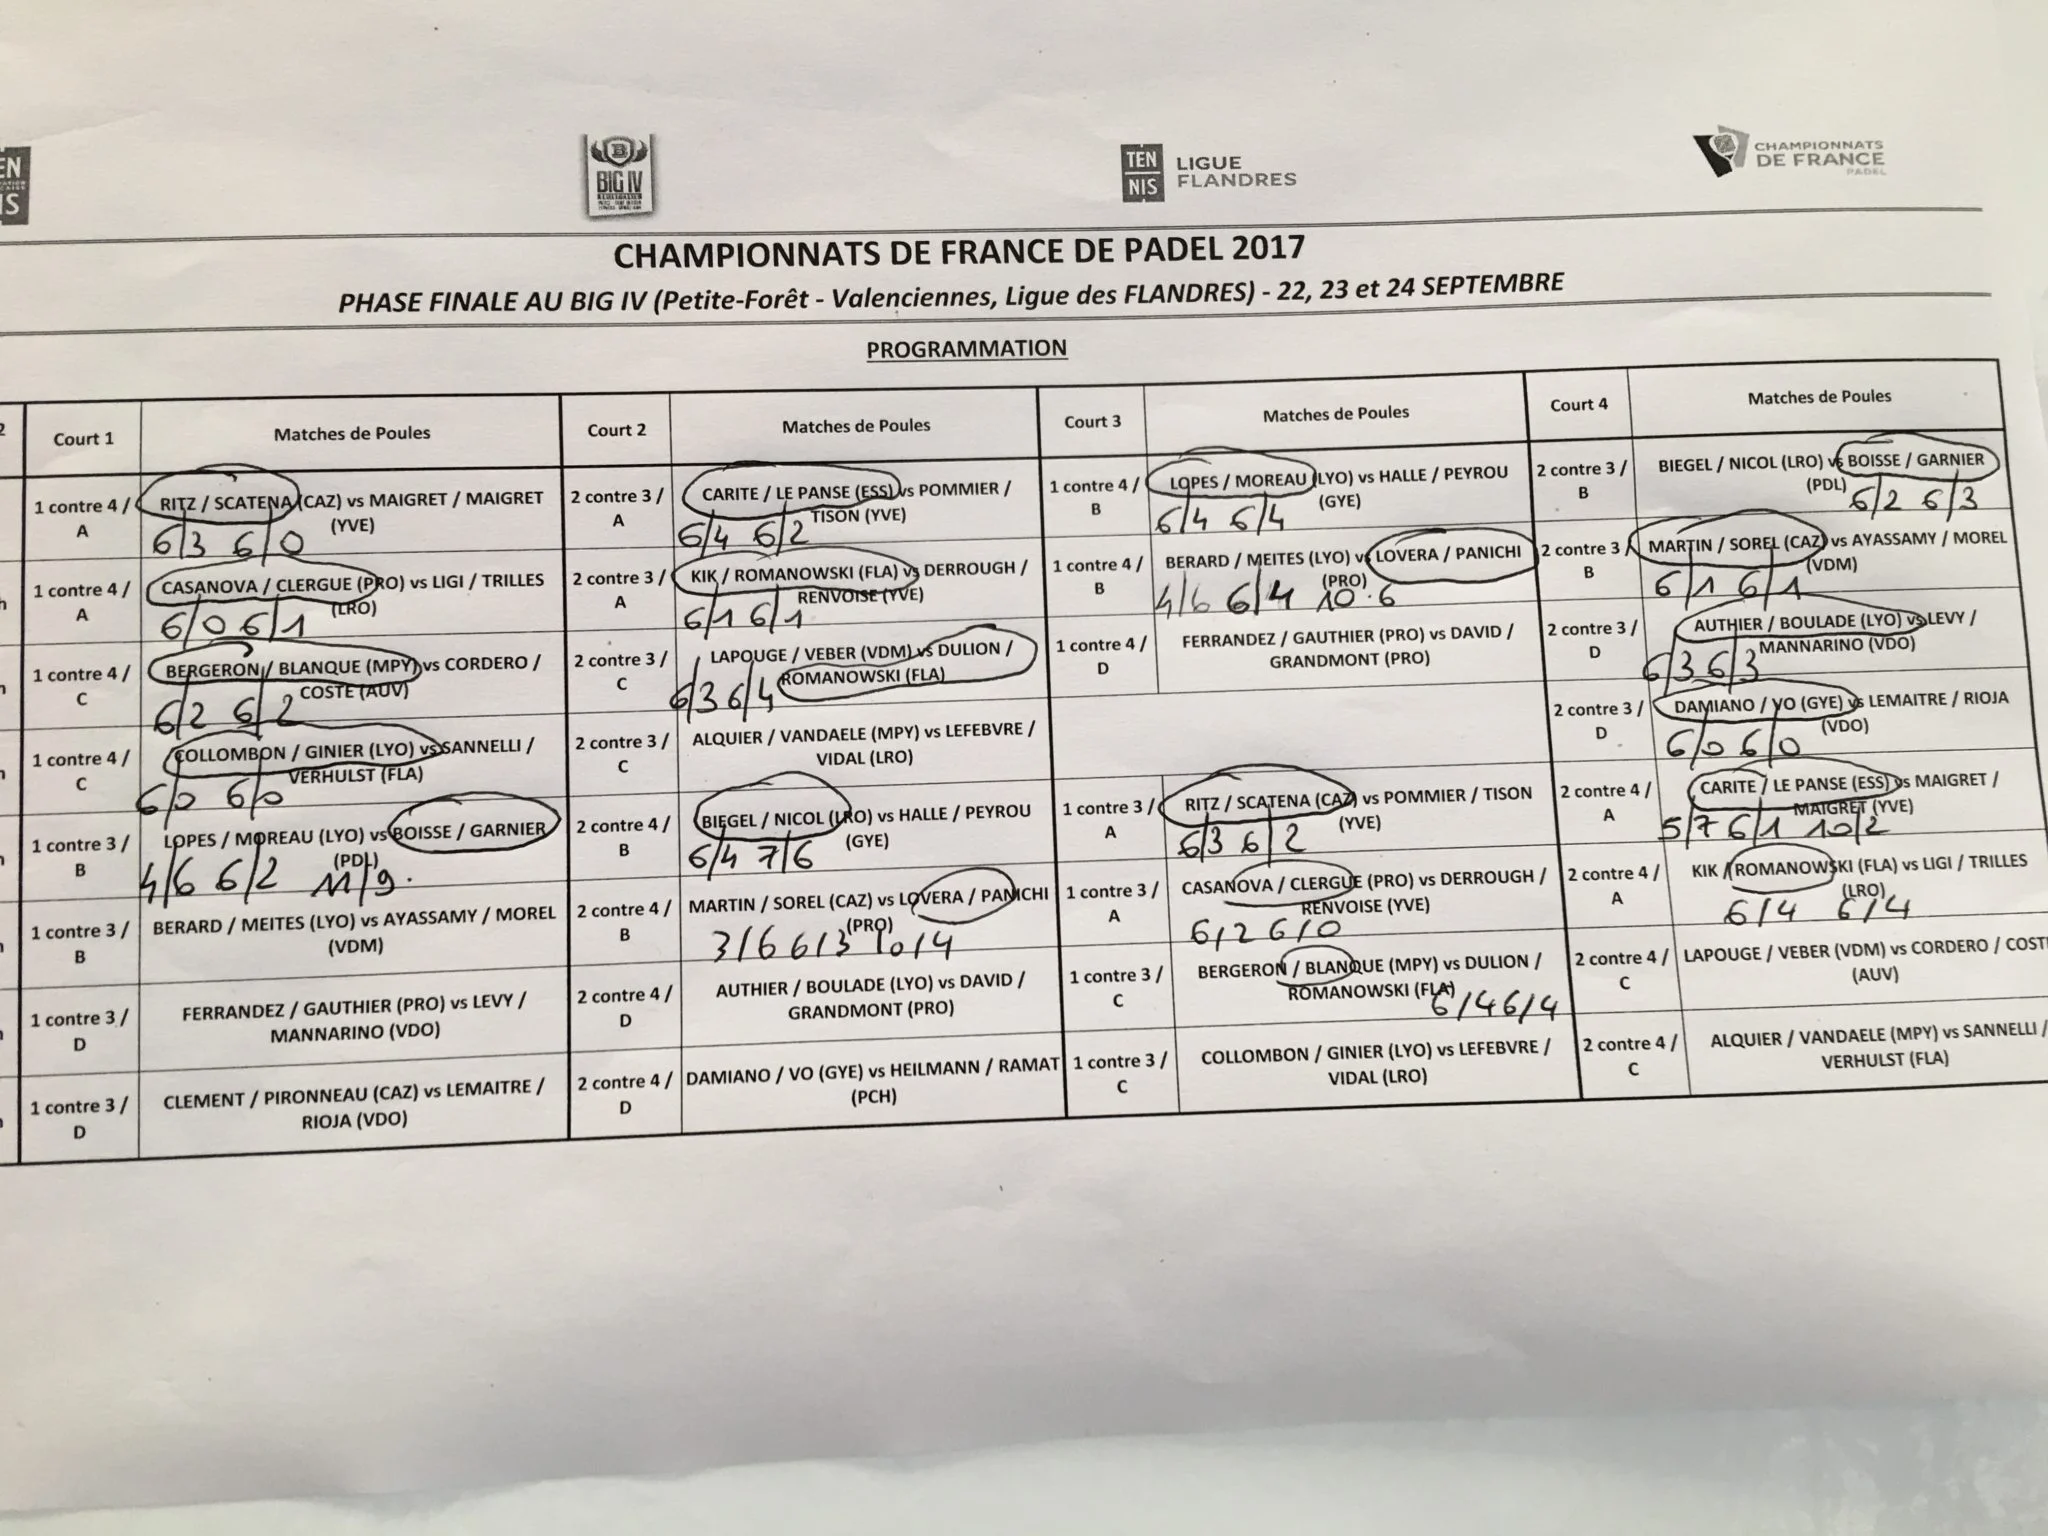 EN
IS
BIG IV
TEN
NIS
LIGUE
FLANDRES
CHAMPIONNATS
DE FRANCE
PADEL
CHAMPIONNATS DE FRANCE DE PADEL 2017
PHASE FINALE AU BIG IV (Petite-Forêt - Valenciennes, Ligue des FLANDRES) - 22, 23 et 24 SEPTEMBRE
PROGRAMMATION
2 Court 1 Matches de Poules Court 2 Matches de Poules Court 3 Matches de Poules Court 4 Matches de Poules
1 contre 4 /
A
RITZ / SCATENA (CAZ) vs MAIGRET / MAIGRET
(YVE)
6/3 6/0
2 contre 3 /
A
CARITE / LE PANSE (ESS) vs POMMIER /
TISON (YVE)
6/4 6/2
1 contre 4 /
B
LOPES / MOREAU (LYO) vs HALLE / PEYROU
(GYE)
6/4 6/4
2 contre 3 /
B
BIEGEL / NICOL (LRO) vs BOISSE / GARNIER
(PDL)
6/2 6/3
1 contre 4 /
A
CASANOVA / CLERGUE (PRO) vs LIGI / TRILLES
(LRO)
6/0 6/1
2 contre 3 /
A
KIK / ROMANOWSKI (FLA) vs DERROUGH /
RENVOISE (YVE)
6/1 6/1
1 contre 4 /
B
BERARD / MEITES (LYO) vs LOVERA / PANICHI
(PRO)
4/6 6/4 10.6
2 contre 3 /
B
MARTIN / SOREL (CAZ) vs AYASSAMY / MOREL
(VDM)
6/1 6/1
1 contre 4 /
C
BERGERON / BLANQUE (MPY) vs CORDERO /
COSTE (AUV)
6/2 6/2
2 contre 3 /
C
LAPOUGE / VEBER (VDM) vs DULION /
ROMANOWSKI (FLA)
6/3 6/4
1 contre 4 /
D
FERRANDEZ / GAUTHIER (PRO) vs DAVID /
GRANDMONT (PRO)
2 contre 3 /
D
AUTHIER / BOULADE (LYO) vs LEVY /
MANNARINO (VDO)
6/3 6/3
1 contre 4 /
C
COLLOMBON / GINIER (LYO) vs SANNELLI /
VERHULST (FLA)
6/0 6/0
2 contre 3 /
C
ALQUIER / VANDAELE (MPY) vs LEFEBVRE /
VIDAL (LRO)
2 contre 3 /
D
DAMIANO / VO (GYE) vs LEMAITRE / RIOJA
(VDO)
6/0 6/0
1 contre 3 /
B
LOPES / MOREAU (LYO) vs BOISSE / GARNIER
(PDL)
4/6 6/2 11/9.
2 contre 4 /
B
BIEGEL / NICOL (LRO) vs HALLE / PEYROU
(GYE)
6/4 7/6
1 contre 3 /
A
RITZ / SCATENA (CAZ) vs POMMIER / TISON
(YVE)
6/3 6/2
2 contre 4 /
A
CARITE / LE PANSE (ESS) vs MAIGRET /
MAIGRET (YVE)
5/7 6/1 10/2
1 contre 3 /
B
BERARD / MEITES (LYO) vs AYASSAMY / MOREL
(VDM)
2 contre 4 /
B
MARTIN / SOREL (CAZ) vs LOVERA / PANICHI
(PRO)
3/6 6/3 10/4
1 contre 3 /
A
CASANOVA / CLERGUE (PRO) vs DERROUGH /
RENVOISE (YVE)
6/2 6/0
2 contre 4 /
A
KIK / ROMANOWSKI (FLA) vs LIGI / TRILLES
(LRO)
6/4 6/4
1 contre 3 /
D
FERRANDEZ / GAUTHIER (PRO) vs LEVY /
MANNARINO (VDO)
2 contre 4 /
D
AUTHIER / BOULADE (LYO) vs DAVID /
GRANDMONT (PRO)
1 contre 3 /
C
BERGERON / BLANQUE (MPY) vs DULION /
ROMANOWSKI (FLA)
6/4 6/4
2 contre 4 /
C
LAPOUGE / VEBER (VDM) vs CORDERO / COSTE
(AUV)
1 contre 3 /
D
CLEMENT / PIRONNEAU (CAZ) vs LEMAITRE /
RIOJA (VDO)
2 contre 4 /
D
DAMIANO / VO (GYE) vs HEILMANN / RAMAT
(PCH)
1 contre 3 /
C
COLLOMBON / GINIER (LYO) vs LEFEBVRE /
VIDAL (LRO)
2 contre 4 /
C
ALQUIER / VANDAELE (MPY) vs SANNELLI /
VERHULST (FLA)